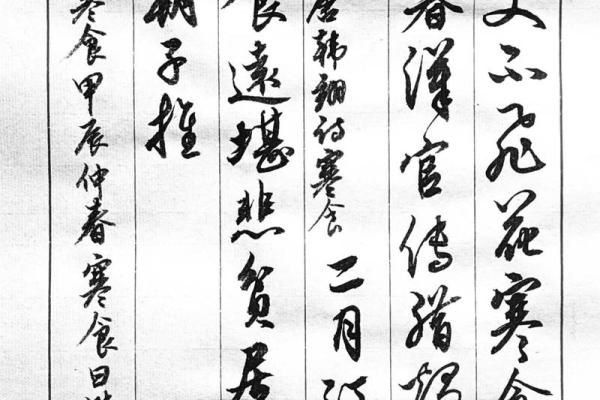 不飛花寒食
暮漢宮傳蠟燭
唐韓翃詩寒食 二月江
食遠堪悲貧居
朝子推
寒食甲辰仲春寒食日